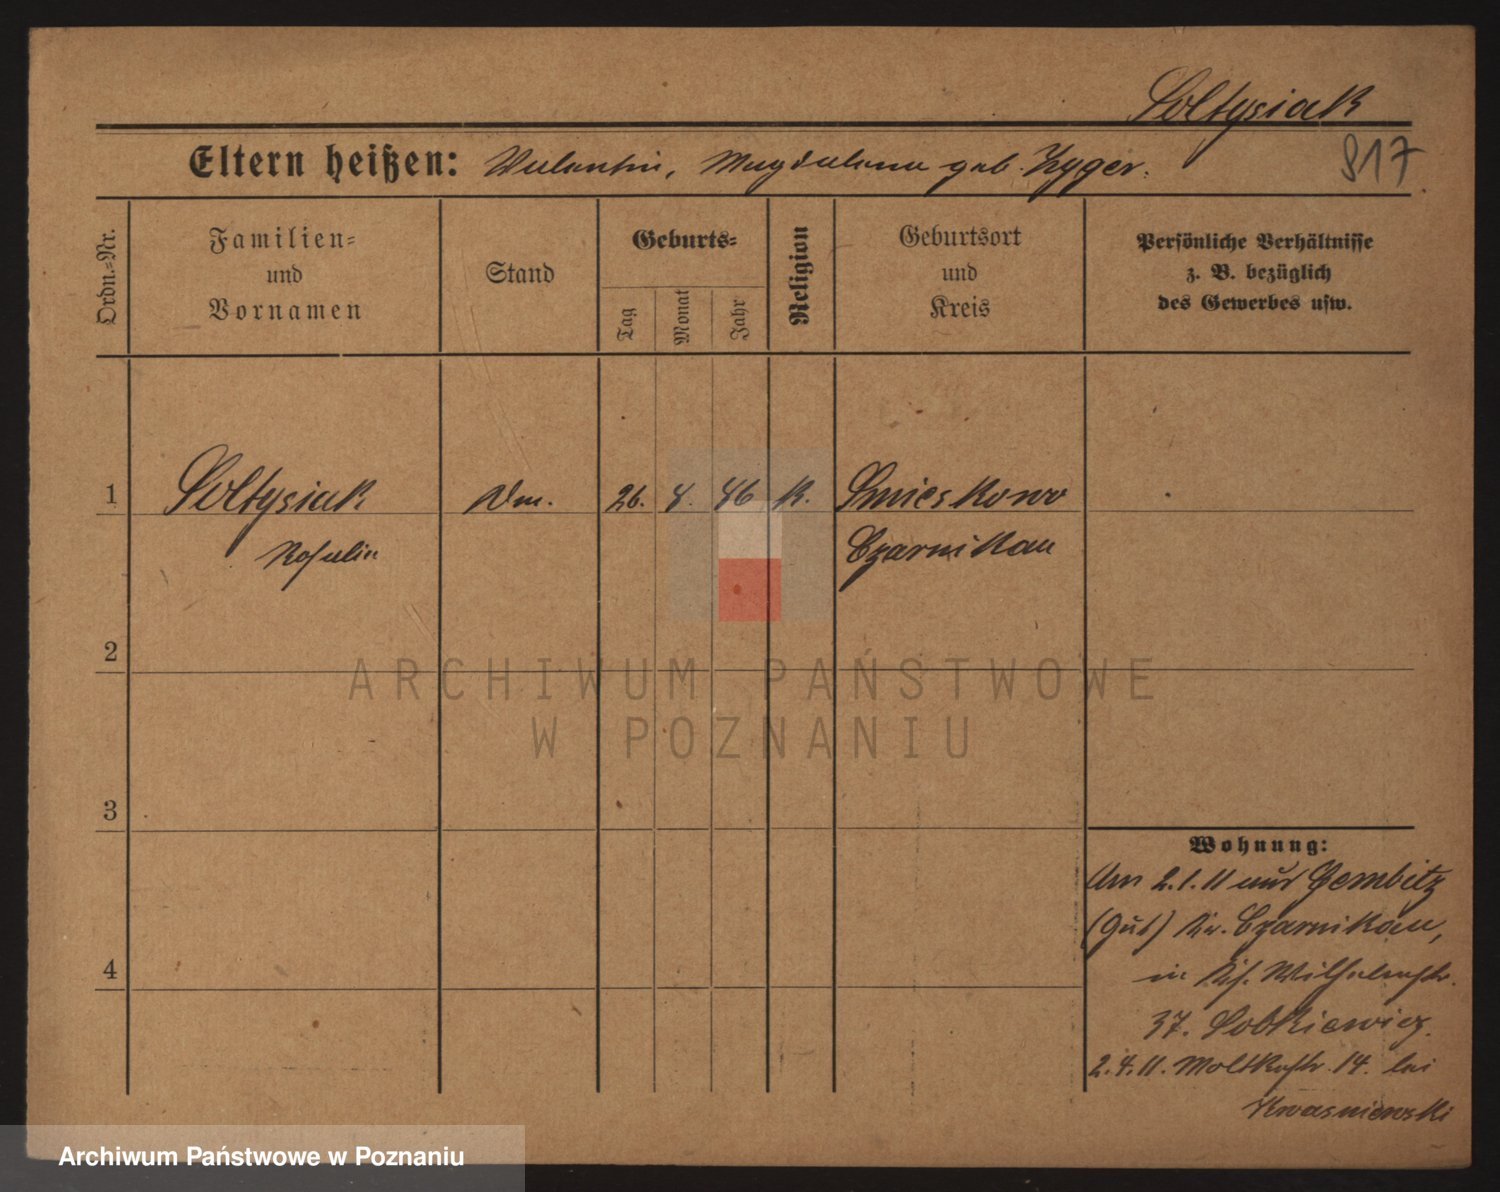 Soltysiak
Eltern heißen: Valentin, Magdalena geb. Zyger.
917
Ordn.=Nr.
Familien=
und
Vornamen
Stand
Geburts=
Tag
Monat
Jahr
Religion
Geburtsort
und
Kreis
Persönliche Verhältnisse
z. B. bezüglich
des Gewerbes usw.
1
Soltysiak
26. 4. 46 K.
Smieskowo
Rosalie
Czarnikau
2
3
4
Wohnung:
Am 2.1.11 aus Gembitz
(Gut) Kr. Czarnikau,
in Wilhelmstr.
37. Sobkiewicz.
2.4.11. Moltkestr. 14. bei
Kwasniewski
ARCHIWUM PAŃSTWOWE
W POZNANIU
Archiwum Państwowe w Poznaniu